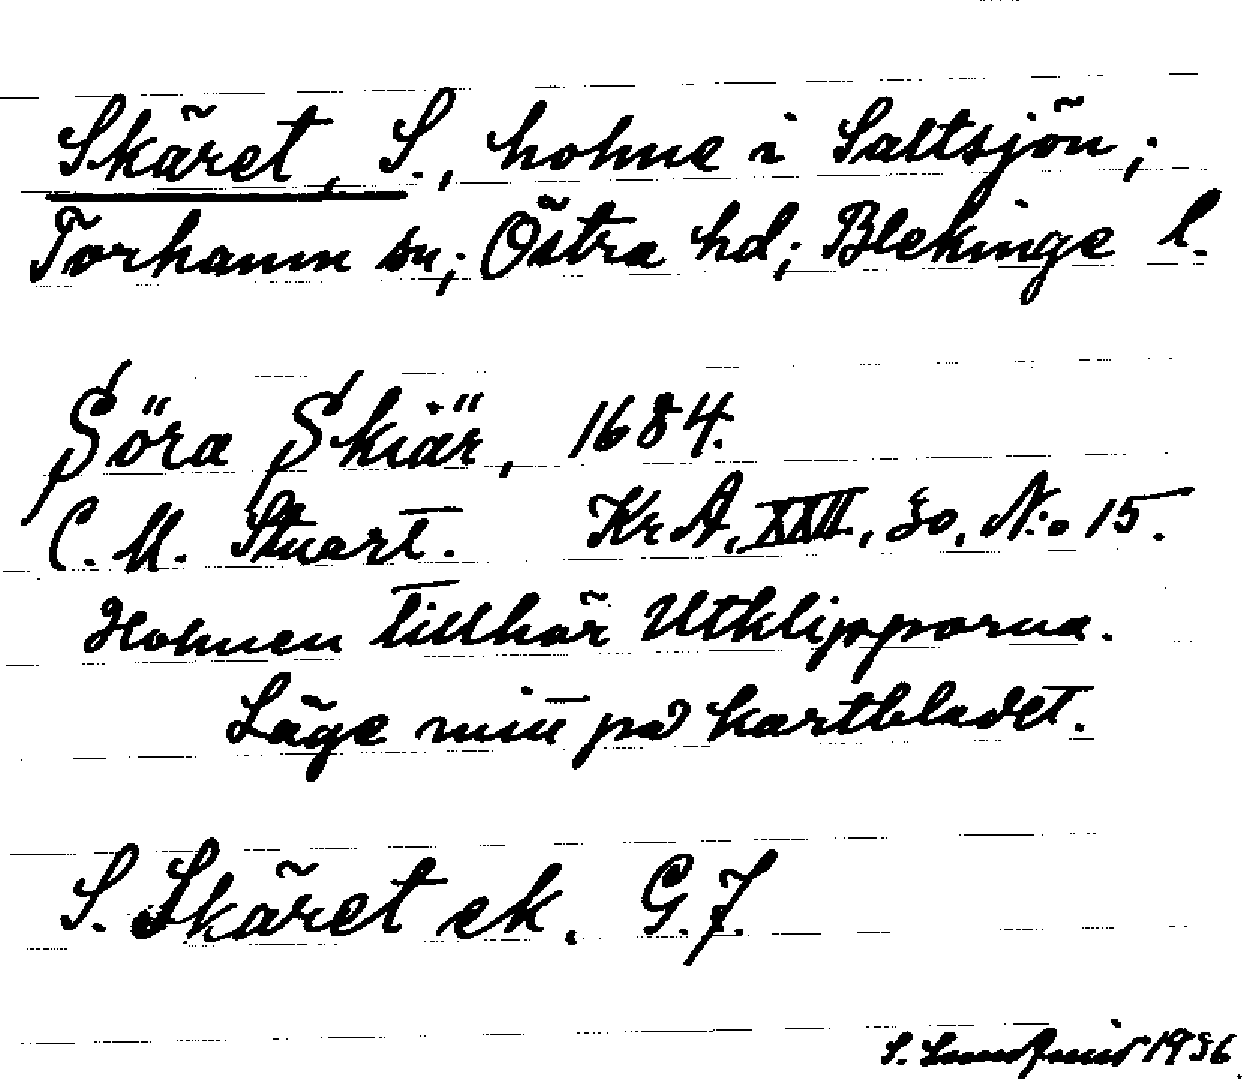 Skäret, S., holme i Saltsjön;
Torhamn sn; Östra hd; Blekinge l.
Söra Skiär, 1684.
C. M. Stuart. Kr A, XXII, So, N:o 15.
Holmen tillhör Utklipporna.
Läge mitt på kartbladet.
S. Skäret ek. G.7.
S. 1936